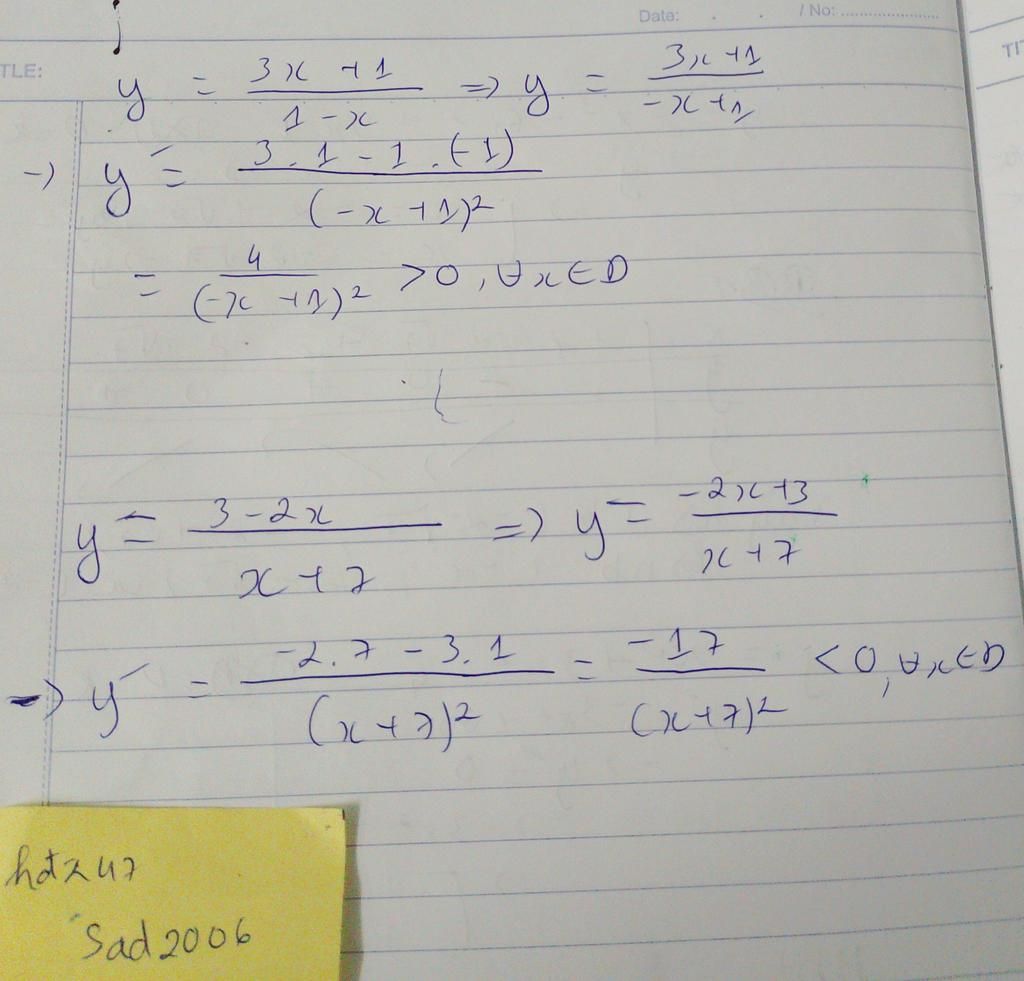 Date: . . / No: ........................
TLE:
TI
y = (3x + 1)/(1 - x) => y = (3x+1)/(-x+1)
-> y' = (3.1 - 1.(-1))/(-x+1)²
= 4/(-x+1)² >0, ∀x∈D
y = (3-2x)/(x+7) => y = (-2x+3)/(x+7)
-> y' = (-2.7 - 3.1)/(x+7)² = -17/(x+7)² <0, ∀x∈D
Sad2006